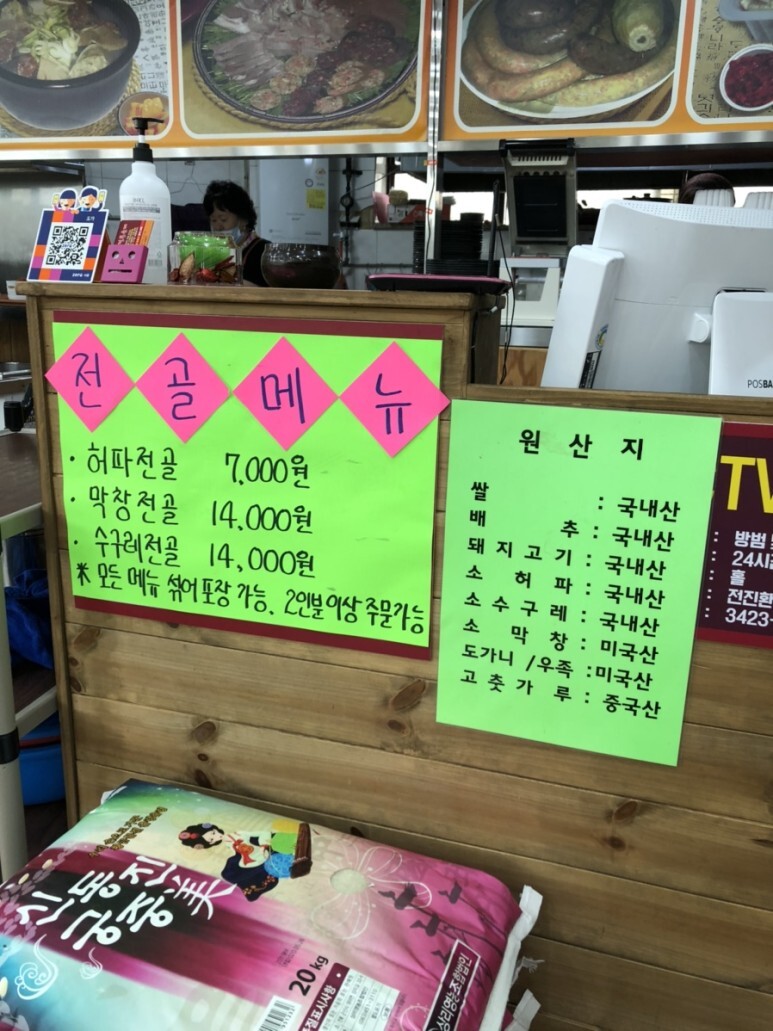 전골메뉴
· 허파전골 7,000원
· 막창전골 14,000원
· 수구레전골 14,000원
※ 모든 메뉴 섞어 포장 가능. 2인분이상 주문가능
원 산 지
쌀 : 국내산
배 추 : 국내산
돼지고기 : 국내산
소 허 파 : 국내산
소 수 구 레 : 국내산
소 막 창 : 미국산
도가니 /우족 : 미국산
고 춧 가 루 : 중국산
POSBA
TV
: 방범 및
: 24시
: 홀
: 전진환
: 3423-
신동진美
궁중
20 kg